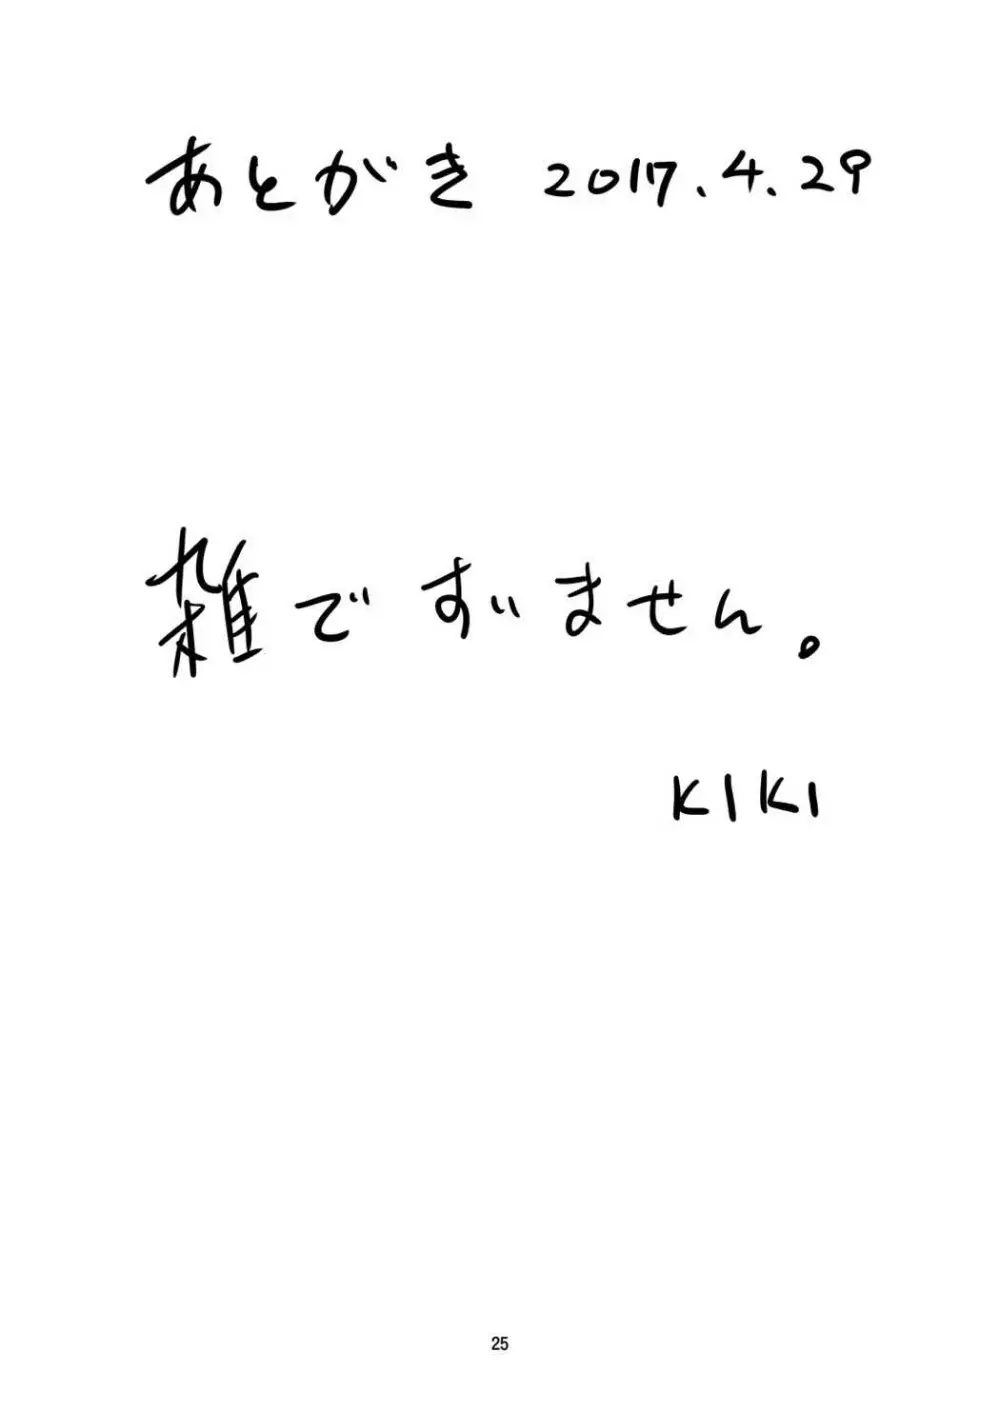 あとがき 2017.4.29
雑ですいません。
KIKI
25